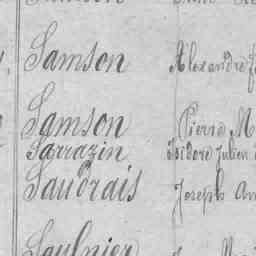 Samson Alexandre
Samson Pierre M
Sarrazin Isidore Julien
Saudrais Joseph
Saulnier